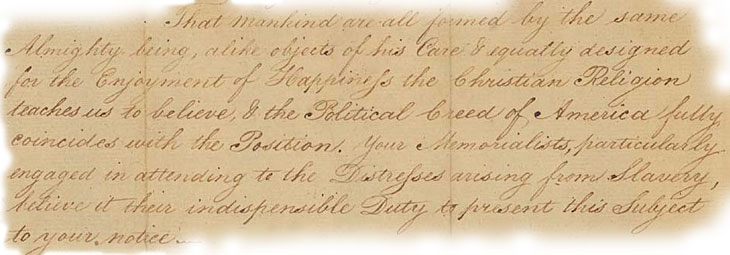 That mankind are all formed by the same
Almighty being, alike objects of his Care & equally designed
for the Enjoyment of Happineſs the Christian Religion
teaches us to believe, & the Political Creed of America fully
coincides with the Position. Your Memorialists, particularly
engaged in attending to the Distreſses arising from Slavery,
believe it their indispensible Duty to present this Subject
to your notice